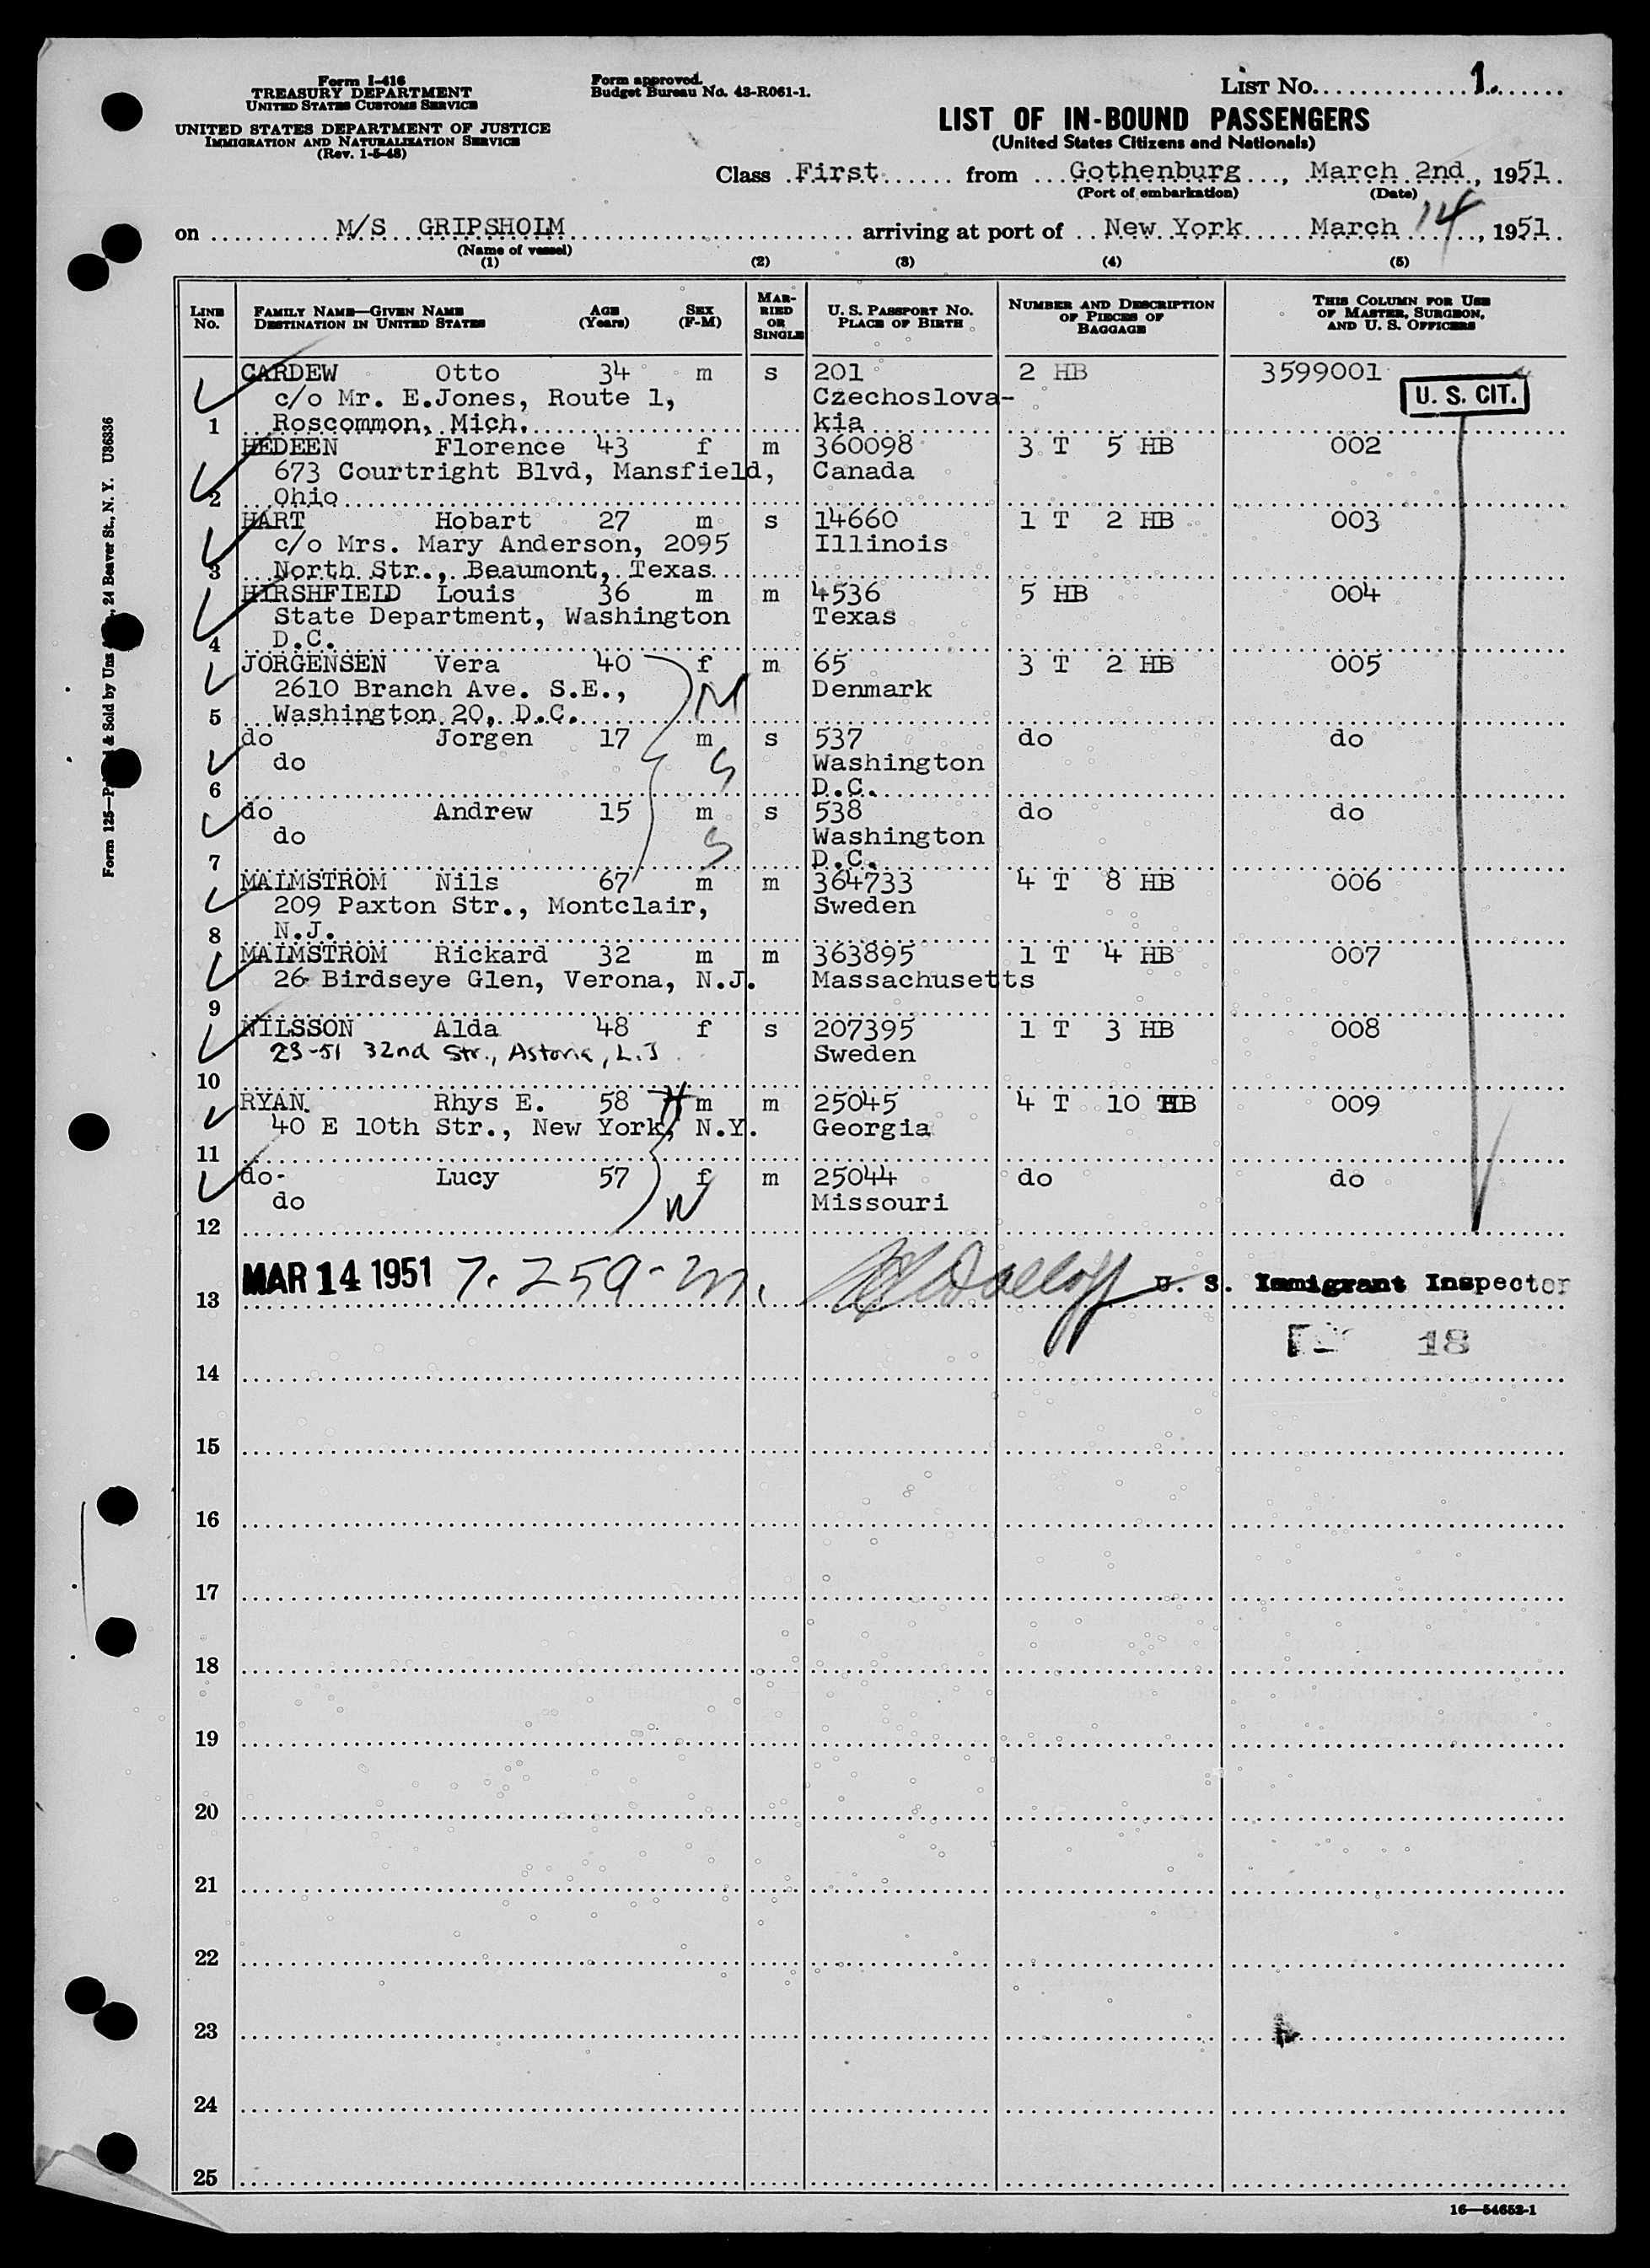 Form I-416
TREASURY DEPARTMENT
UNITED STATES CUSTOMS SERVICE
UNITED STATES DEPARTMENT OF JUSTICE
IMMIGRATION AND NATURALIZATION SERVICE
(Rev. 1-5-48)
Form approved.
Budget Bureau No. 43-R061-1.
LIST No. 1.
LIST OF IN-BOUND PASSENGERS
(United States Citizens and Nationals)
Class First from Gothenburg, March 2nd, 1951
(Port of embarkation) (Date)
on M/S GRIPSHOLM arriving at port of New York March 14, 1951
(Name of vessel)
(1) (2) (3) (4) (5)
LINE No. FAMILY NAME—GIVEN NAME DESTINATION IN UNITED STATES AGE (Years) SEX (F-M) MARRIED OR SINGLE U. S. PASSPORT NO. PLACE OF BIRTH NUMBER AND DESCRIPTION OF PIECES OF BAGGAGE THIS COLUMN FOR USE OF MASTER, SURGEON, AND U. S. OFFICERS
CARDEW Otto 34 m s 201 2 HB 3599001
c/o Mr. E.Jones, Route 1, Czechoslova- U. S. CIT.
1 Roscommon, Mich. kia
HEDEEN Florence 43 f m 360098 3 T 5 HB 002
673 Courtright Blvd, Mansfield, Canada
2 Ohio
HART Hobart 27 m s 14660 1 T 2 HB 003
c/o Mrs. Mary Anderson, 2095 Illinois
3 North Str., Beaumont, Texas
HIRSHFIELD Louis 36 m m 4536 5 HB 004
State Department, Washington Texas
4 D.C.
JORGENSEN Vera 40 f m 65 3 T 2 HB 005
2610 Branch Ave. S.E., M Denmark
5 Washington 20, D.C.
do Jorgen 17 m s 537 do do
do S Washington
6 D.C.
do Andrew 15 m s 538 do do
do S Washington
7 D.C.
MALMSTROM Nils 67 m m 364733 4 T 8 HB 006
209 Paxton Str., Montclair, Sweden
8 N.J.
MALMSTROM Rickard 32 m m 363895 1 T 4 HB 007
26 Birdseye Glen, Verona, N.J. Massachusetts
9
NILSSON Alda 48 f s 207395 1 T 3 HB 008
23-51 32nd Str., Astoria, L.I Sweden
10
RYAN Rhys E. 58 H m m 25045 4 T 10 HB 009
40 E 10th Str., New York, N.Y. Georgia
11
do- Lucy 57 f m 25044 do do
do W Missouri
12
MAR 14 1951 7. 259-m. U. S. Immigrant Inspector
13
18
14
15
16
17
18
19
20
21
22
23
24
25
16—54652-1
24 Beaver St., N. Y. U36336